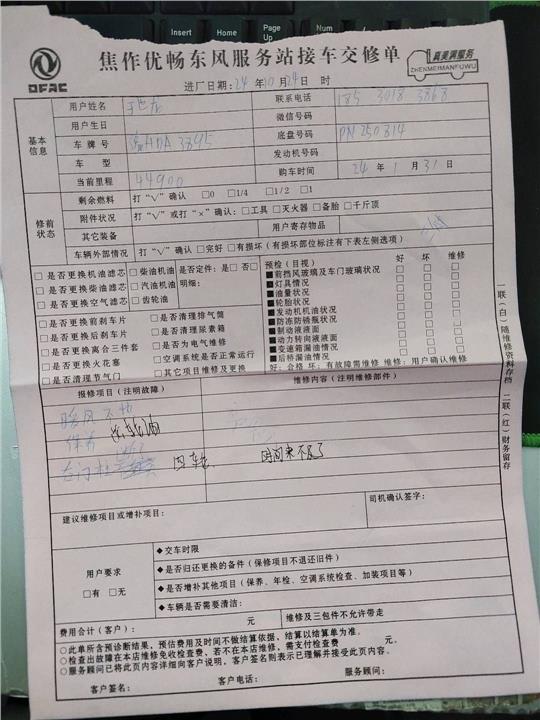 Insert
Home
Page Up
Num Lock
DFAC
焦作优畅东风服务站接车交修单
真美满服务
ZHENMEIMANFUWU
进厂日期: 24 年 10 月 24 日 时
基本信息
用户姓名
联系电话 185 3018 3868
用户生日
微信号码
车牌号 HDA 3895
底盘号码 PN250314
车型
发动机号码
当前里程 44900
购车时间 24 年 1 月 31 日
修前状态
剩余燃料 打“√”确认 □0 □1/4 □1/2 □1
附件状况 打“√”或打“×”确认:□工具 □灭火器 □备胎 □千斤顶
其它装备
用户寄存物品
车辆外部情况 打“√”确认□完好 □有损坏(有损坏部位标注有下表左侧选项)
□是否更换机油滤芯 □柴油机油 □是否定件:是□否□
□是否更换柴油滤芯 □汽油机油 明细:
□是否更换空气滤芯 □齿轮油
□是否更换前刹车片 □是否清理排气筒
□是否更换后刹车片 □是否清理尿素箱
□是否更换离合三件套 □是否为电气维修
□是否更换火花塞 □空调系统是否正常运行
□是否清理节气门 □其它项目维修及更换
预检(目视) 好 坏 维修
■前挡风玻璃及车门玻璃状况
■灯具情况
■油量状况
■轮胎状况
■发动机机油状况
■防冻防锈瓶状况
■制动液液面
■动力转向液液面
■变速箱漏油情况
■后桥漏油情况
好:合格 坏:有故障需维修 维修:用户确认维修
报修项目(注明故障)
维修内容(注明维修部件)
暖风不热
保养
时间来不及了
建议维修项目或增补项目:
司机确认签字:
用户要求
□有 □无
◆交车时限
◆是否归还更换的备件(保修项目不退还旧件)
◆是否增补其他项目(保养、年检、空调系统检查、加装项目等)
◆车辆是否需要清洁:
费用合计(客户): 元
维修及三包件不允许带走
○此单所含预诊断结果,预估费用及时间不做结算依据,结算以结算单为准。
○检查出故障在本店维修免收检查费、若不在本店维修,需支付检查费 元。
○服务顾问已将此页内容详细向客户说明,客户签名则表示已理解并接受此页内容。
客户签名: 客户电话: 服务顾问:
一联(白)随维修资料存档 二联(红)财务留存